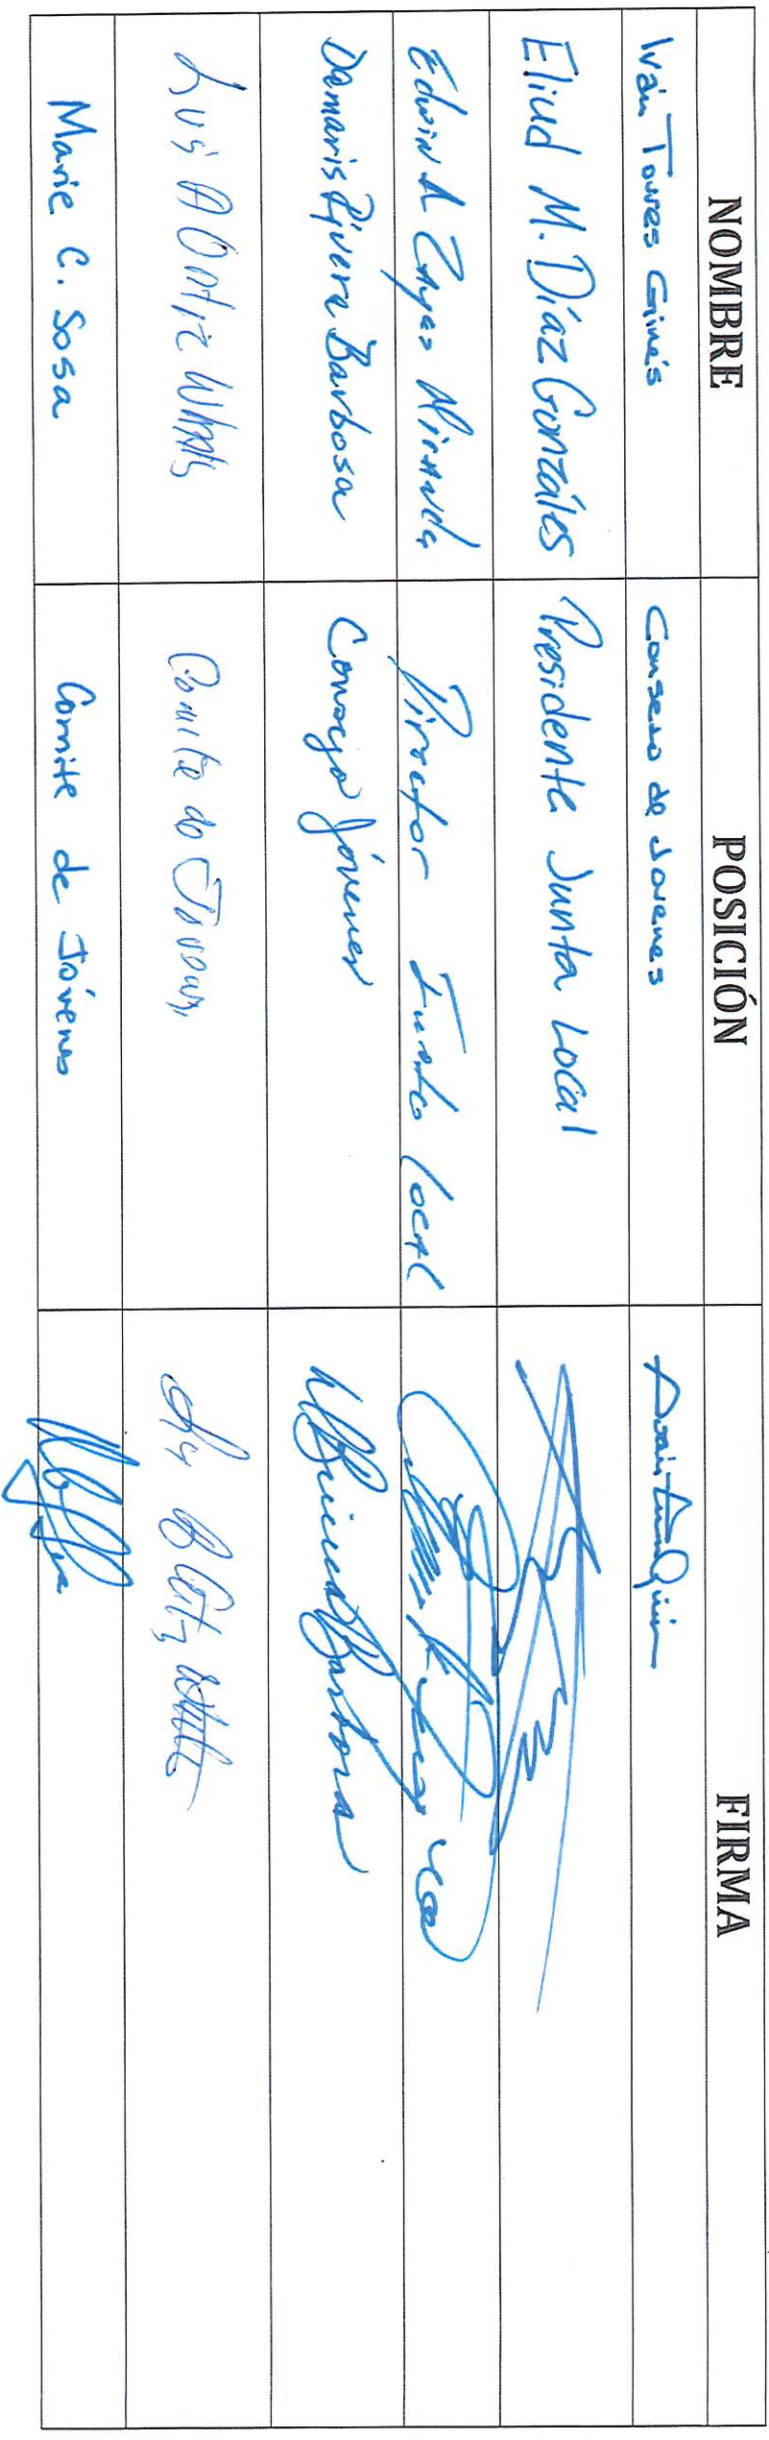 NOMBRE POSICIÓN FIRMA
Iván Torres Ginés Consejo de Jovenes
Eliud M. Díaz Gonzáles Presidente Junta Local
Edwin A Zayas Miranda Director Junta Local
Damaris Rivera Barbosa Consejo Jóvenes
Luis A Ortiz Comite de Jovenes
Marie C. Sosa Comite de Jóvenes